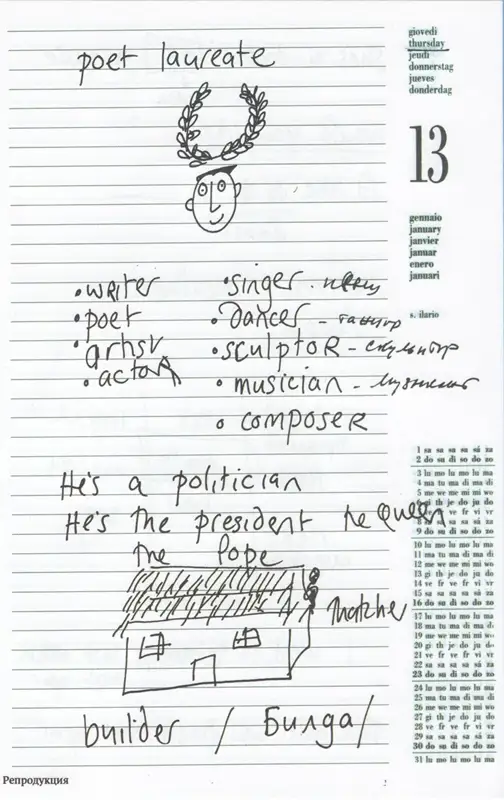 poet laureate
giovedì
thursday
jeudi
donnerstag
jueves
donderdag
13
gennaio
january
janvier
januar
enero
januari
s. ilario
• writer
• poet
• artist
• actor
• singer - певец
• dancer - танцор
• sculptor - скульптор
• musician - музыкант
• composer
He's a politician
He's the president the Queen
the Pope
thatcher
builder / Билда /
1 sa sa sa sa sá za
2 do su di so do zo
3 lu mo lu mo lu ma
4 ma tu ma di ma di
5 me we me mi mi wo
6 gi th je do ju do
7 ve fr ve fr vi vr
8 sa sa sa sa sá za
9 do su di so do zo
10 lu mo lu mo lu ma
11 ma tu ma di ma di
12 me we me mi mi wo
13 gi th je do ju do
14 ve fr ve fr vi vr
15 sa sa sa sa sá za
16 do su di so do zo
17 lu mo lu mo lu ma
18 ma tu ma di ma di
19 me we me mi mi wo
20 gi th je do ju do
21 ve fr ve fr vi vr
22 sa sa sa sa sá za
23 do su di so do zo
24 lu mo lu mo lu ma
25 ma tu ma di ma di
26 me we me mi mi wo
27 gi th je do ju do
28 ve fr ve fr vi vr
29 sa sa sa sa sá za
30 do su di so do zo
31 lu mo lu mo lu ma
Репродукция